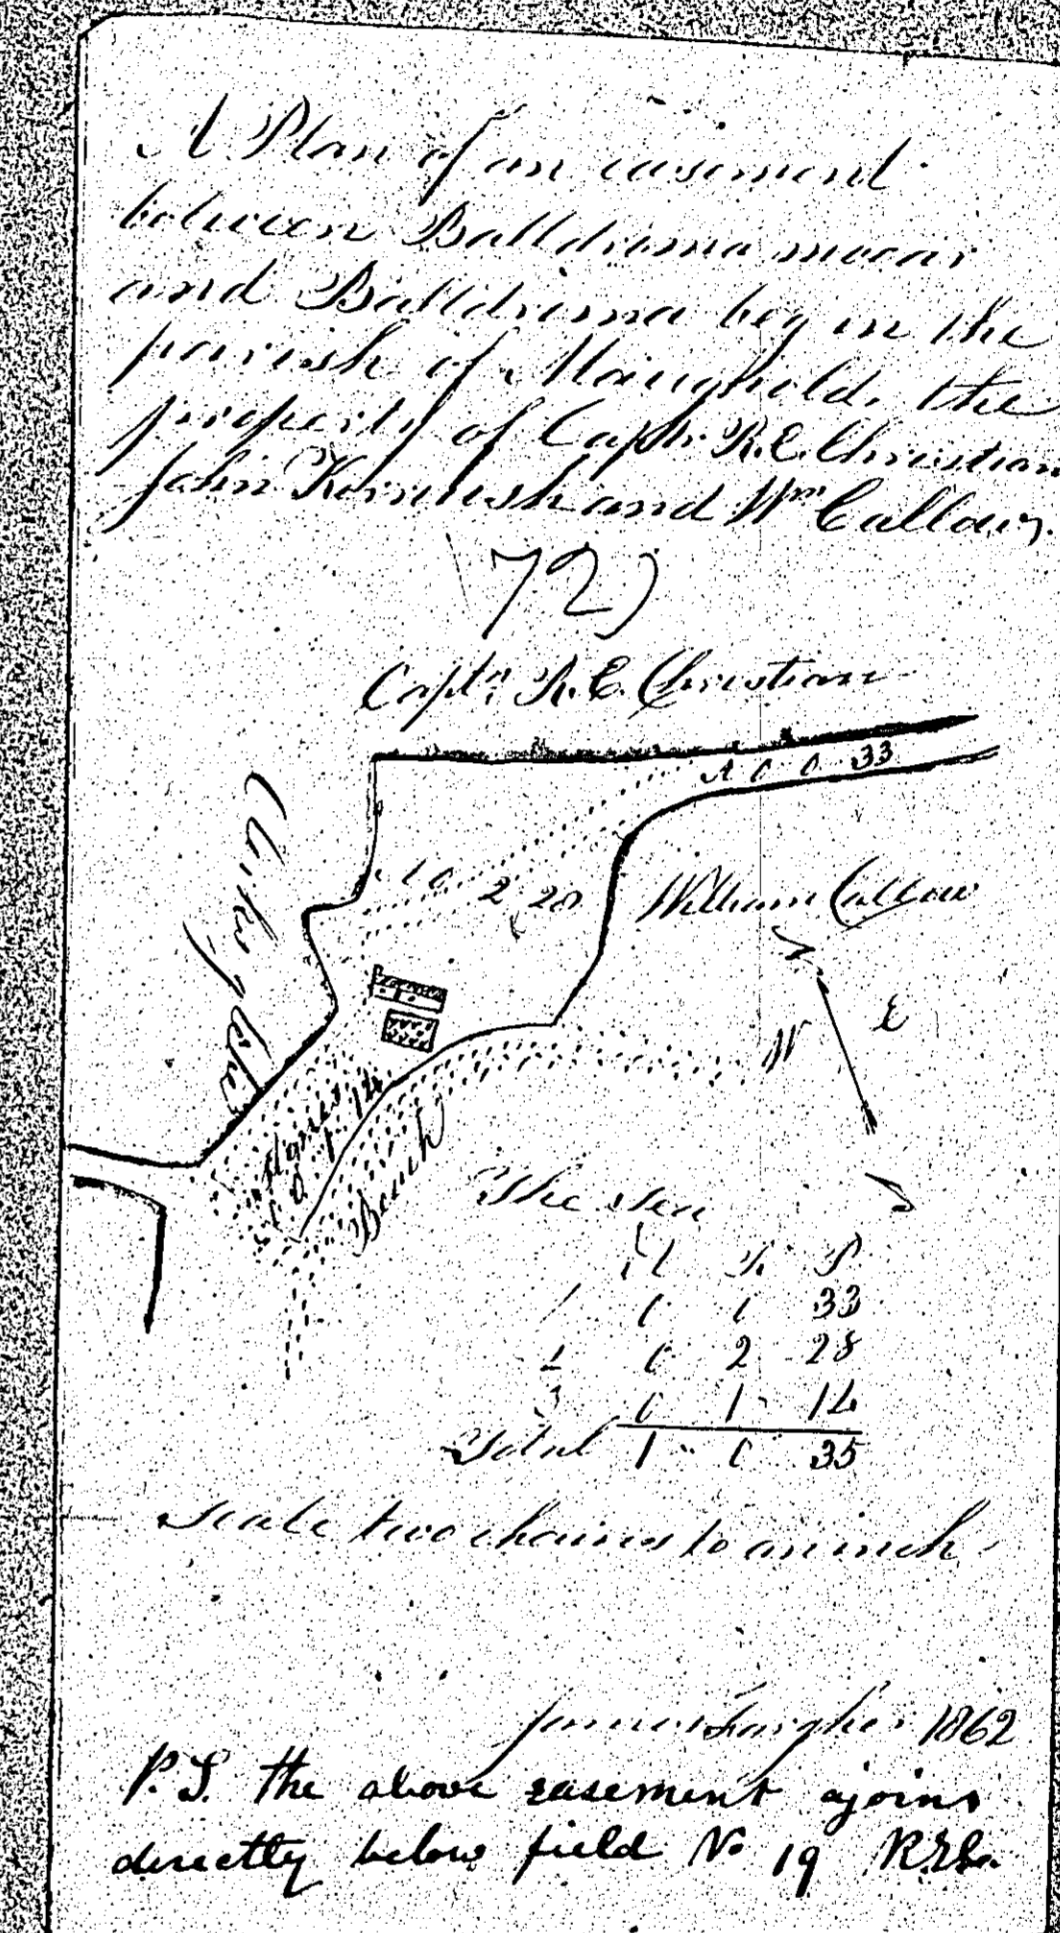 A Plan of an easement
between Balldroma mooar
and Balldroma beg in the
parish of Maughold, the
property of Capt. R.E. Christian
John Kerruish and Wm Callow.
72)
Captn R.E. Christian
A 0 0 33
2 28
William Callow
N
E
W
S
1 14
Beach
The Sea
A R P
1 0 0 33
2 0 2 28
3 0 1 14
Total 1 0 35
Scale two chains to an inch
James Fargher 1862
P.S. the above easement ajoins
directly below field No 19 R.E.C.